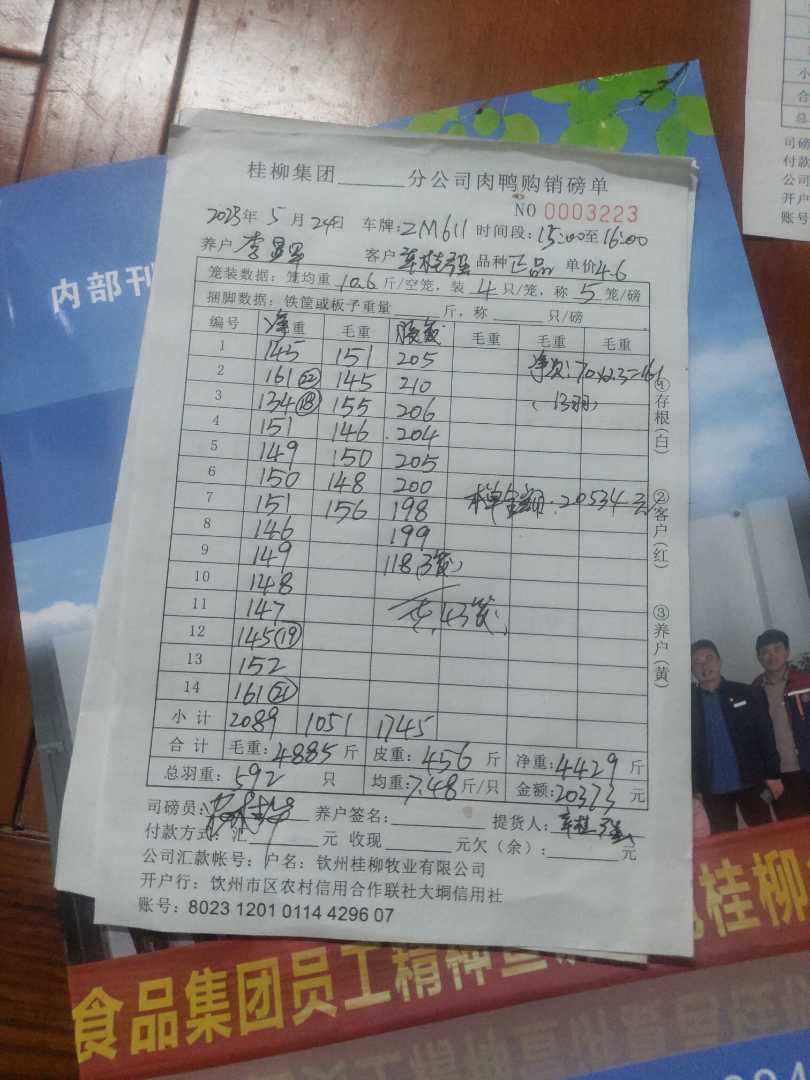 内部刊
桂柳集团______分公司肉鸭购销磅单
NO 0003223
2023年 5月 24日 车牌:ZM611 时间段:15:00至16:00
养户 李 客户 车桂强 品种 正品 单价4.6
笼装数据:笼均重 10.6 斤/空笼,装 4 只/笼,称 5 笼/磅
捆脚数据:铁筐或板子重量______斤,称______只/磅
编号 净重 毛重 毛重 毛重 毛重
1 145 151 205 净次:70×2.3=161
2 161(22) 145 210 (13羽)
3 134(18) 155 206
4 151 146 204
5 149 150 205
6 150 148 200
7 151 156 198 20534元
8 146 199
9 149 118(3筐)
10 148
11 147 43筐
12 145(19)
13 152
14 161(21)
小计 2089 1051 1745
合计 毛重:4885斤 皮重:456斤 净重:4429斤
总羽重:592只 均重:7.48斤/只 金额:20373元
①存根(白)
②客户(红)
③养户(黄)
司磅员: 养户签名:______ 提货人:车桂强
付款方式:汇______元 收现______元欠(余):______元
公司汇款帐号:户名:钦州桂柳牧业有限公司
开户行:饮州市区农村信用合作联社大垌信用社
账号:8023 1201 0114 4296 07
食品集团员工精神
桂柳
合
总
司磅
付款
公司
开户
账号